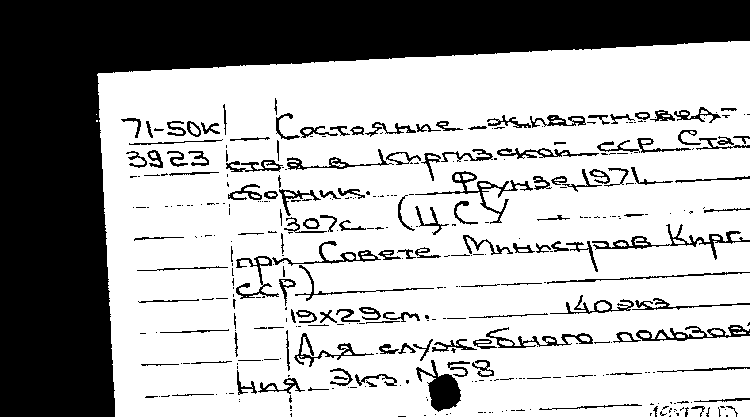 71-50к Состояние животновод-
3923 ства в Киргизской ССР. Стат
сборник. Фрунзе, 1971.
307с. (ЦСУ
при Совете Министров Кирг.
ССР).
19х29см. 140экз.
Для служебного пользова
ния. Экз. N 58